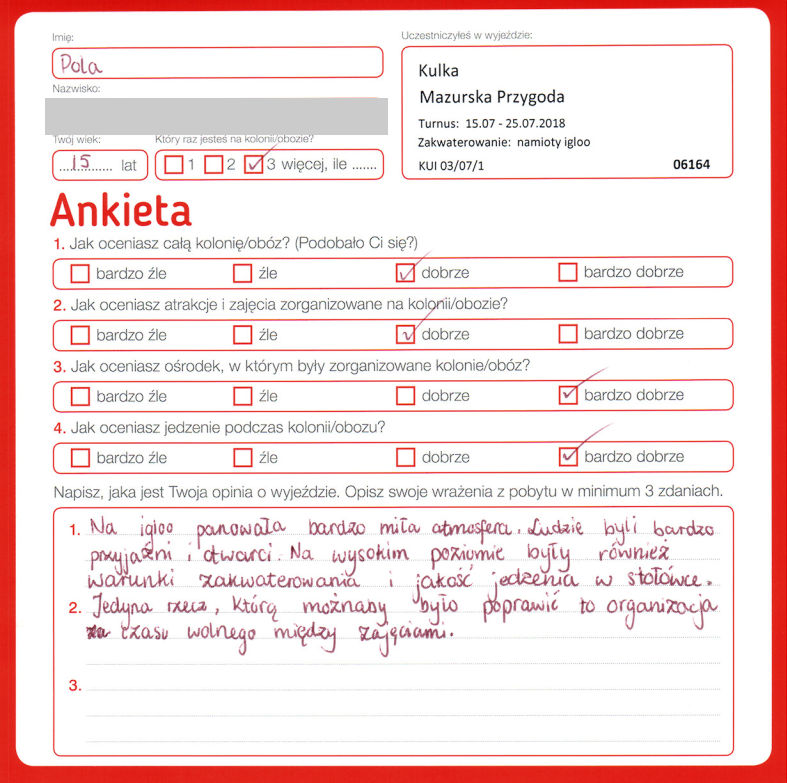 Imię:
Pola
Nazwisko:
Twój wiek:
15 lat
Który raz jesteś na kolonii/obozie?
1 2 3 więcej, ile .......
Uczestniczyłeś w wyjeździe:
Kulka
Mazurska Przygoda
Turnus: 15.07 - 25.07.2018
Zakwaterowanie: namioty igloo
KUI 03/07/1 06164
Ankieta
1. Jak oceniasz całą kolonię/obóz? (Podobało Ci się?)
bardzo źle źle dobrze bardzo dobrze
2. Jak oceniasz atrakcje i zajęcia zorganizowane na kolonii/obozie?
bardzo źle źle dobrze bardzo dobrze
3. Jak oceniasz ośrodek, w którym były zorganizowane kolonie/obóz?
bardzo źle źle dobrze bardzo dobrze
4. Jak oceniasz jedzenie podczas kolonii/obozu?
bardzo źle źle dobrze bardzo dobrze
Napisz, jaka jest Twoja opinia o wyjeździe. Opisz swoje wrażenia z pobytu w minimum 3 zdaniach.
1. Na igloo panowała bardzo miła atmosfera. Ludzie byli bardzo
przyjaźni i otwarci. Na wysokim poziomie były również
warunki zakwaterowania i jakość jedzenia w stołówce.
2. Jedyna rzecz, którą możnaby było poprawić to organizacja
czasu wolnego między zajęciami.
3.